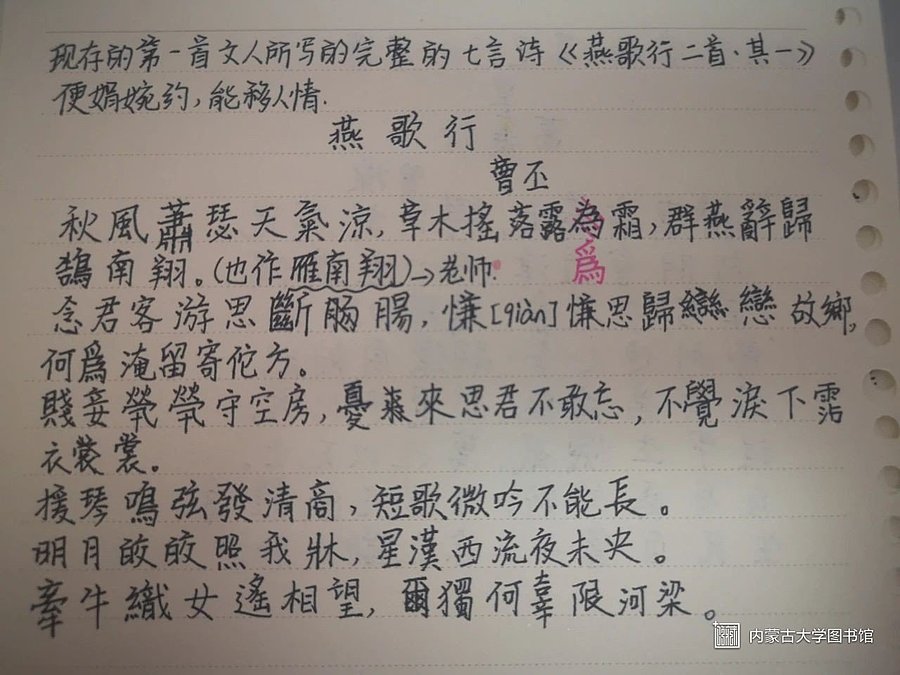 现存的第一首文人所写的完整的七言诗《燕歌行二首·其一》
便娟婉约，能移人情.
燕歌行
曹丕
秋風蕭瑟天氣涼，草木搖落露為霜，群燕辭歸
爲
鵠南翔。(也作雁南翔)→老师
念君客游思斷腸腸，慊[qiàn]慊思歸戀戀故鄉，
何爲淹留寄佗方。
賤妾煢煢守空房，憂來來思君不敢忘，不覺淚下霑
衣裳裳。
援琴鳴弦發清商，短歌微吟不能長。
明月皎皎照我牀，星漢西流夜未央。
牽牛織女遙相望，爾獨何辜限河梁。
内蒙古大学图书馆